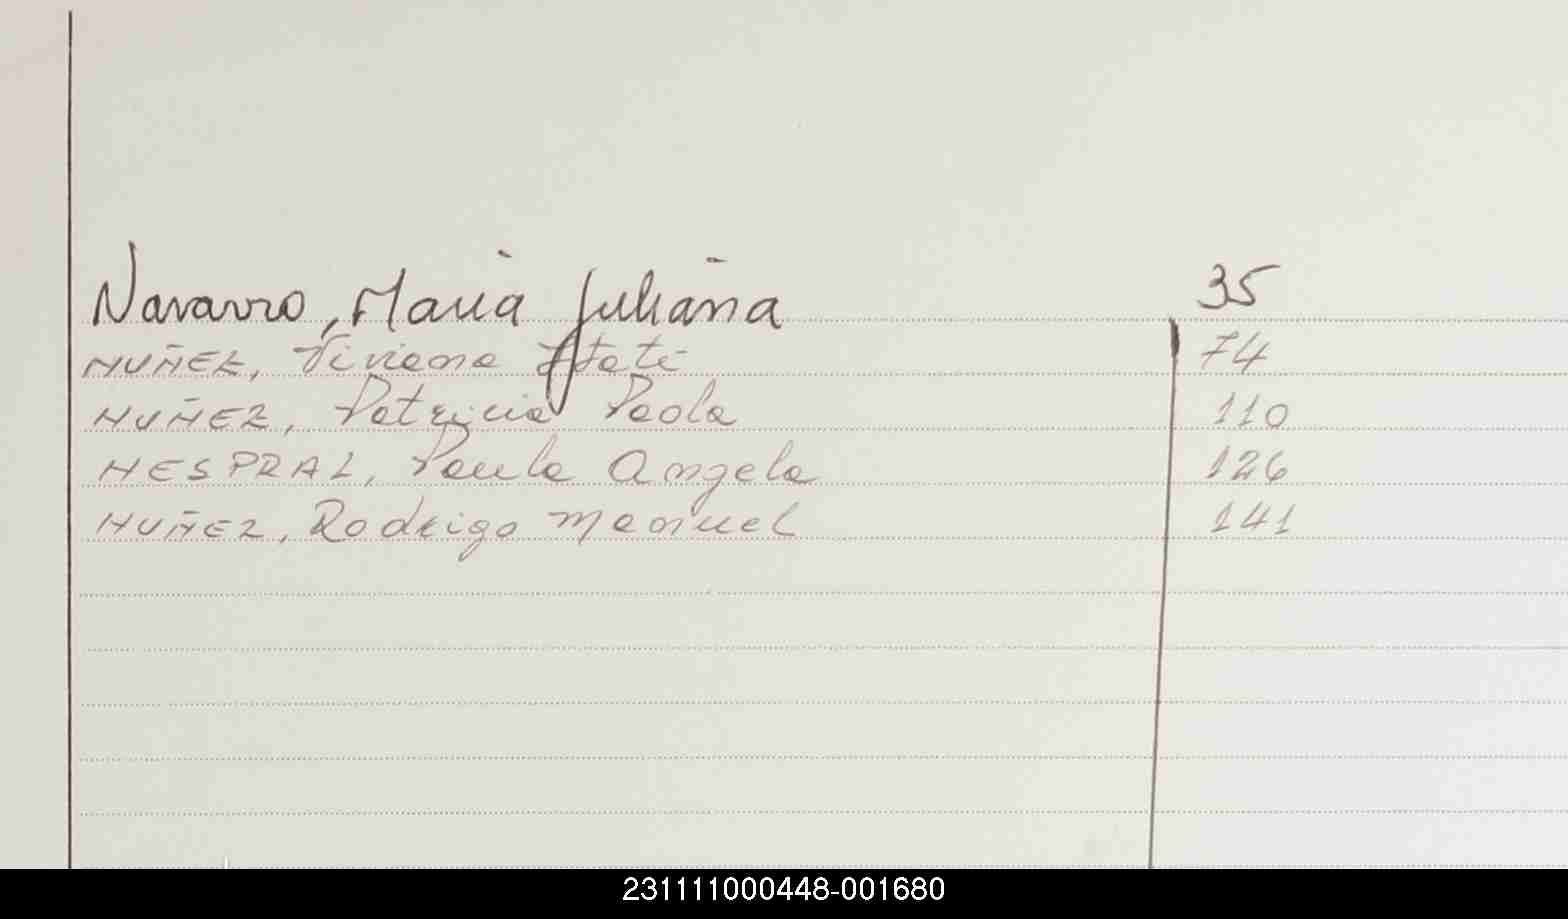 Navarro, Maria Juliana 35
NUÑEZ, Viviana Itatí 74
NUÑEZ, Patricia Paola 110
NESPRAL, Paula Angela 126
NUÑEZ, Rodrigo Manuel 141
231111000448-001680